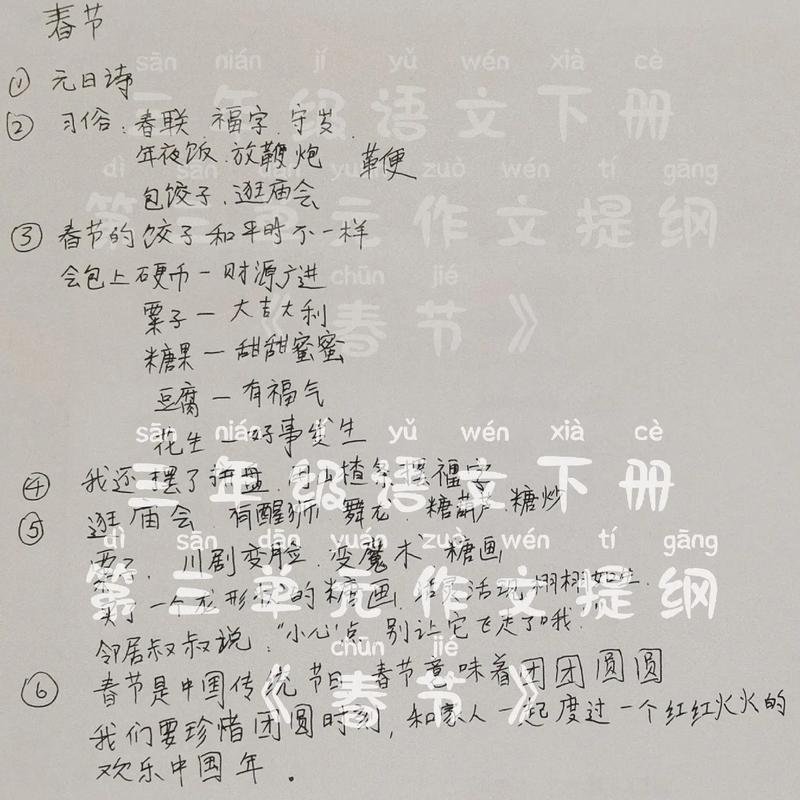 春节
sān nián jí yǔ wén xià cè
① 元日诗
三年级语文下册
② 习俗:春联 福字.守岁.
年夜饭.放鞭炮 革便
dì sān dān yuán zuò wén tí gāng
包饺子.逛庙会
第三单元作文提纲
③ 春节的饺子和平时不一样
会包上硬币—财源广进
chūn jié
粟子—大吉大利
《春节》
糖果—甜甜蜜蜜
豆腐—有福气
花生—好事发生
sān nián jí yǔ wén xià cè
④ 我还摆了拼盘.用山楂条摆福字
三年级语文下册
⑤ 逛庙会 有醒狮.舞龙.糖葫芦.糖炒
dì sān dān yuán zuò wén tí gāng
栗子.川剧变脸.变魔术 糖画
第三单元作文提纲
买了一个龙形状的糖画,活灵活现栩栩如生.
邻居叔叔说:“小心点 别让它飞走了哦.”
chūn jié
⑥ 春节是中国传统节日 春节意味着团团圆圆
《春节》
我们要珍惜团圆时刻,和家人一起度过一个红红火火的
欢乐中国年.